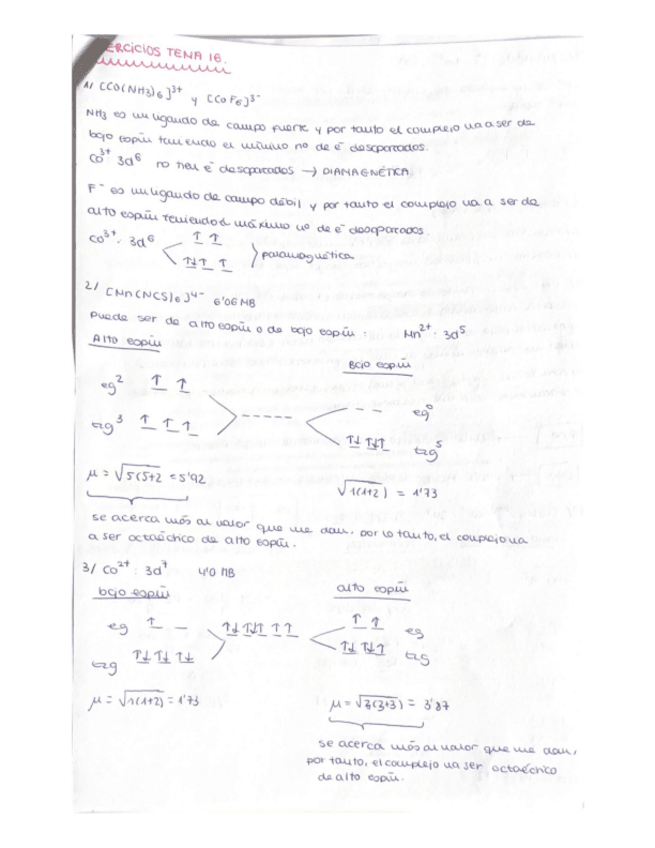 ERCICIOS TEMA 16.
1/ [CO(NH3)6]3+ y [COF6]3-
NH3 es un ligando de campo fuerte y por tanto el complejo va a ser de
bajo espín teniendo el mínimo nº de e- desaparados.
CO3+ 3d6 no tien e- desaparados → DIAMAGNÉTICA
F- es un ligando de campo débil y por tanto el complejo va a ser de
alto espín teniendo el máximo nº de e- desaparados
CO3+: 3d6
↑ ↑
↑↓ ↑ ↑
paramagnética
2/ [Mn(NCS)6]4- 6'06 MB
puede ser de alto espín o de bajo espín: Mn2+: 3d5
Alto espín
Bajo espín
eg2 ↑ ↑
eg0
t2g3 ↑ ↑ ↑
↑↓ ↑↓ ↑ t2g5
μ = √5(5+2 = 5'92
√1(1+2) = 1'73
se acerca más al valor que me dan. por lo tanto, el complejo va
a ser octaédrico de alto espín.
3/ CO2+: 3d7 4'0 MB
bajo espín
alto espín
eg ↑ –
↑↓ ↑↓ ↑ ↑ ↑
↑ ↑ eg
t2g ↑↓ ↑↓ ↑↓
↑↓ ↑↓ ↑ t2g
μ = √1(1+2) = 1'73
μ = √3(3+3) = 3'87
se acerca más al valor que me dan,
por tanto, el complejo va ser octaédrico
de alto espín.